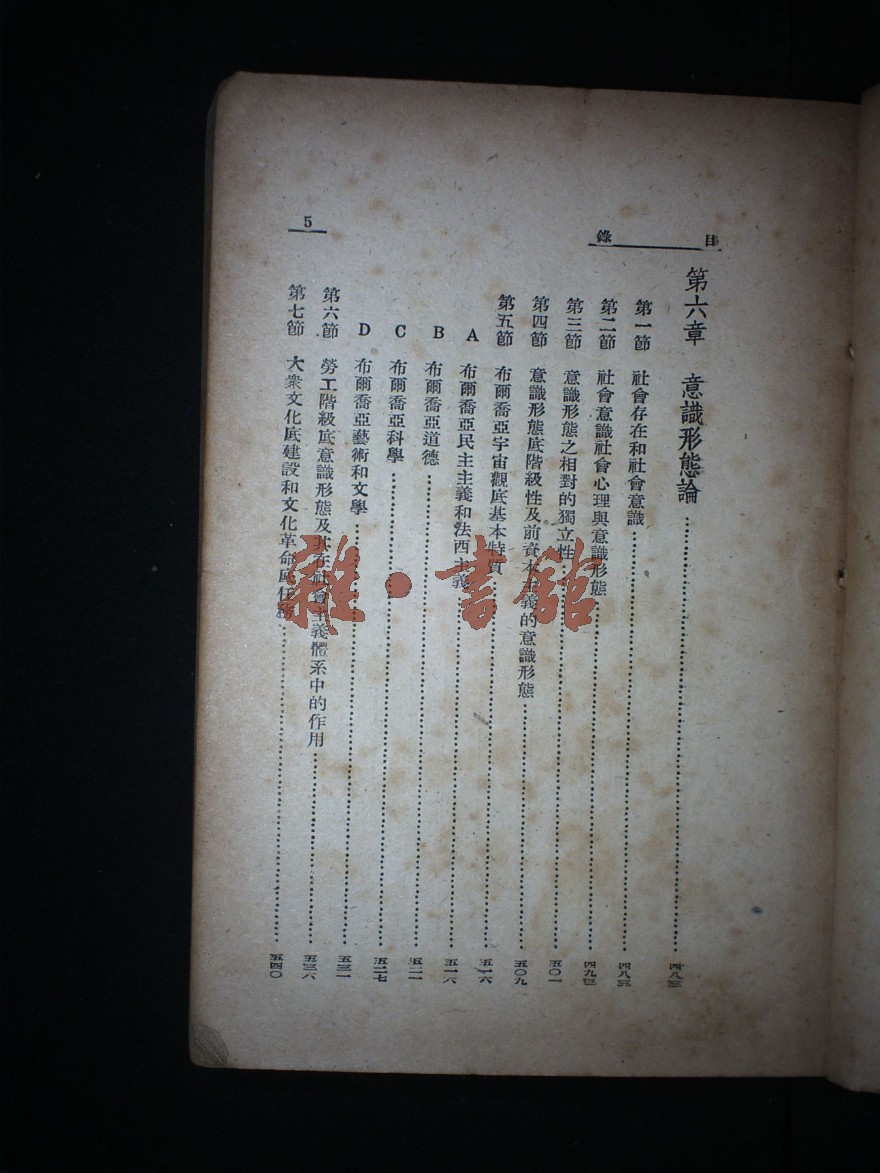 目錄
5
第六章 意識形態論……四八三
第一節 社會存在和社會意識……四八三
第二節 社會意識社會心理與意識形態……四九三
第三節 意識形態之相對的獨立性……五〇一
第四節 意識形態底階級性及前資本主義的意識形態……五〇九
第五節 布爾喬亞宇宙觀底基本特質……五一六
A 布爾喬亞民主主義和法西主義……五一六
B 布爾喬亞道德……五二一
C 布爾喬亞科學……五二七
D 布爾喬亞藝術和文學……五三一
第六節 勞工階級底意識形態及其在社會主義體系中的作用……五三六
第七節 大衆文化底建設和文化革命底任務……五四〇
雜·書館